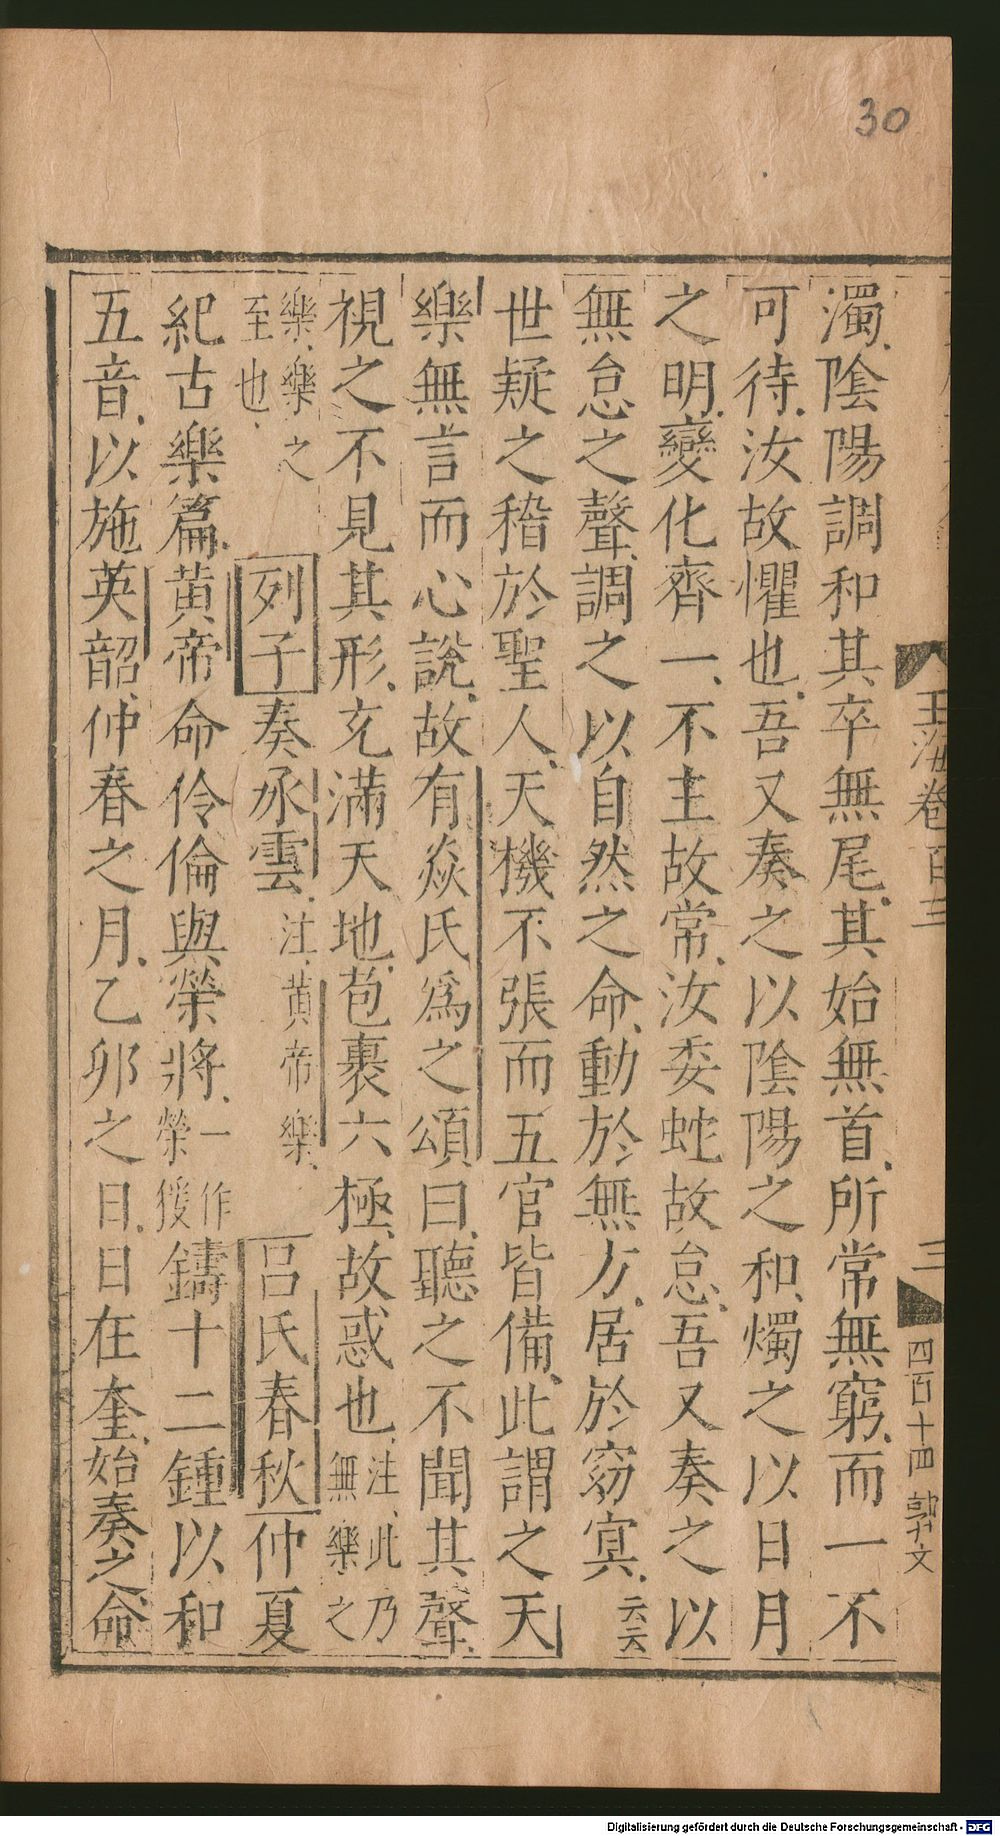 30
玉海卷百三
三
四百十四
濁陰陽調和其卒無尾其始無首所常無窮而一不
可待汝故懼也吾又奏之以陰陽之和燭之以日月
之明變化齊一不主故常汝委蛇故怠吾又奏之以
無怠之聲調之以自然之命動於無方居於窈冥云云
世疑之稽於聖人天機不張而五官皆備此謂之天
樂無言而心說故有焱氏爲之頌曰聽之不聞其聲
視之不見其形充滿天地苞裹六極故惑也注此乃無樂之
樂樂之至也列子奏承雲注黄帝樂呂氏春秋仲夏
紀古樂篇黄帝命伶倫與榮將一作榮猨鑄十二鍾以和
五音以施英韶仲春之月乙卯之日日在奎始奏之命
Digitalisierung gefördert durch die Deutsche Forschungsgemeinschaft - DFG